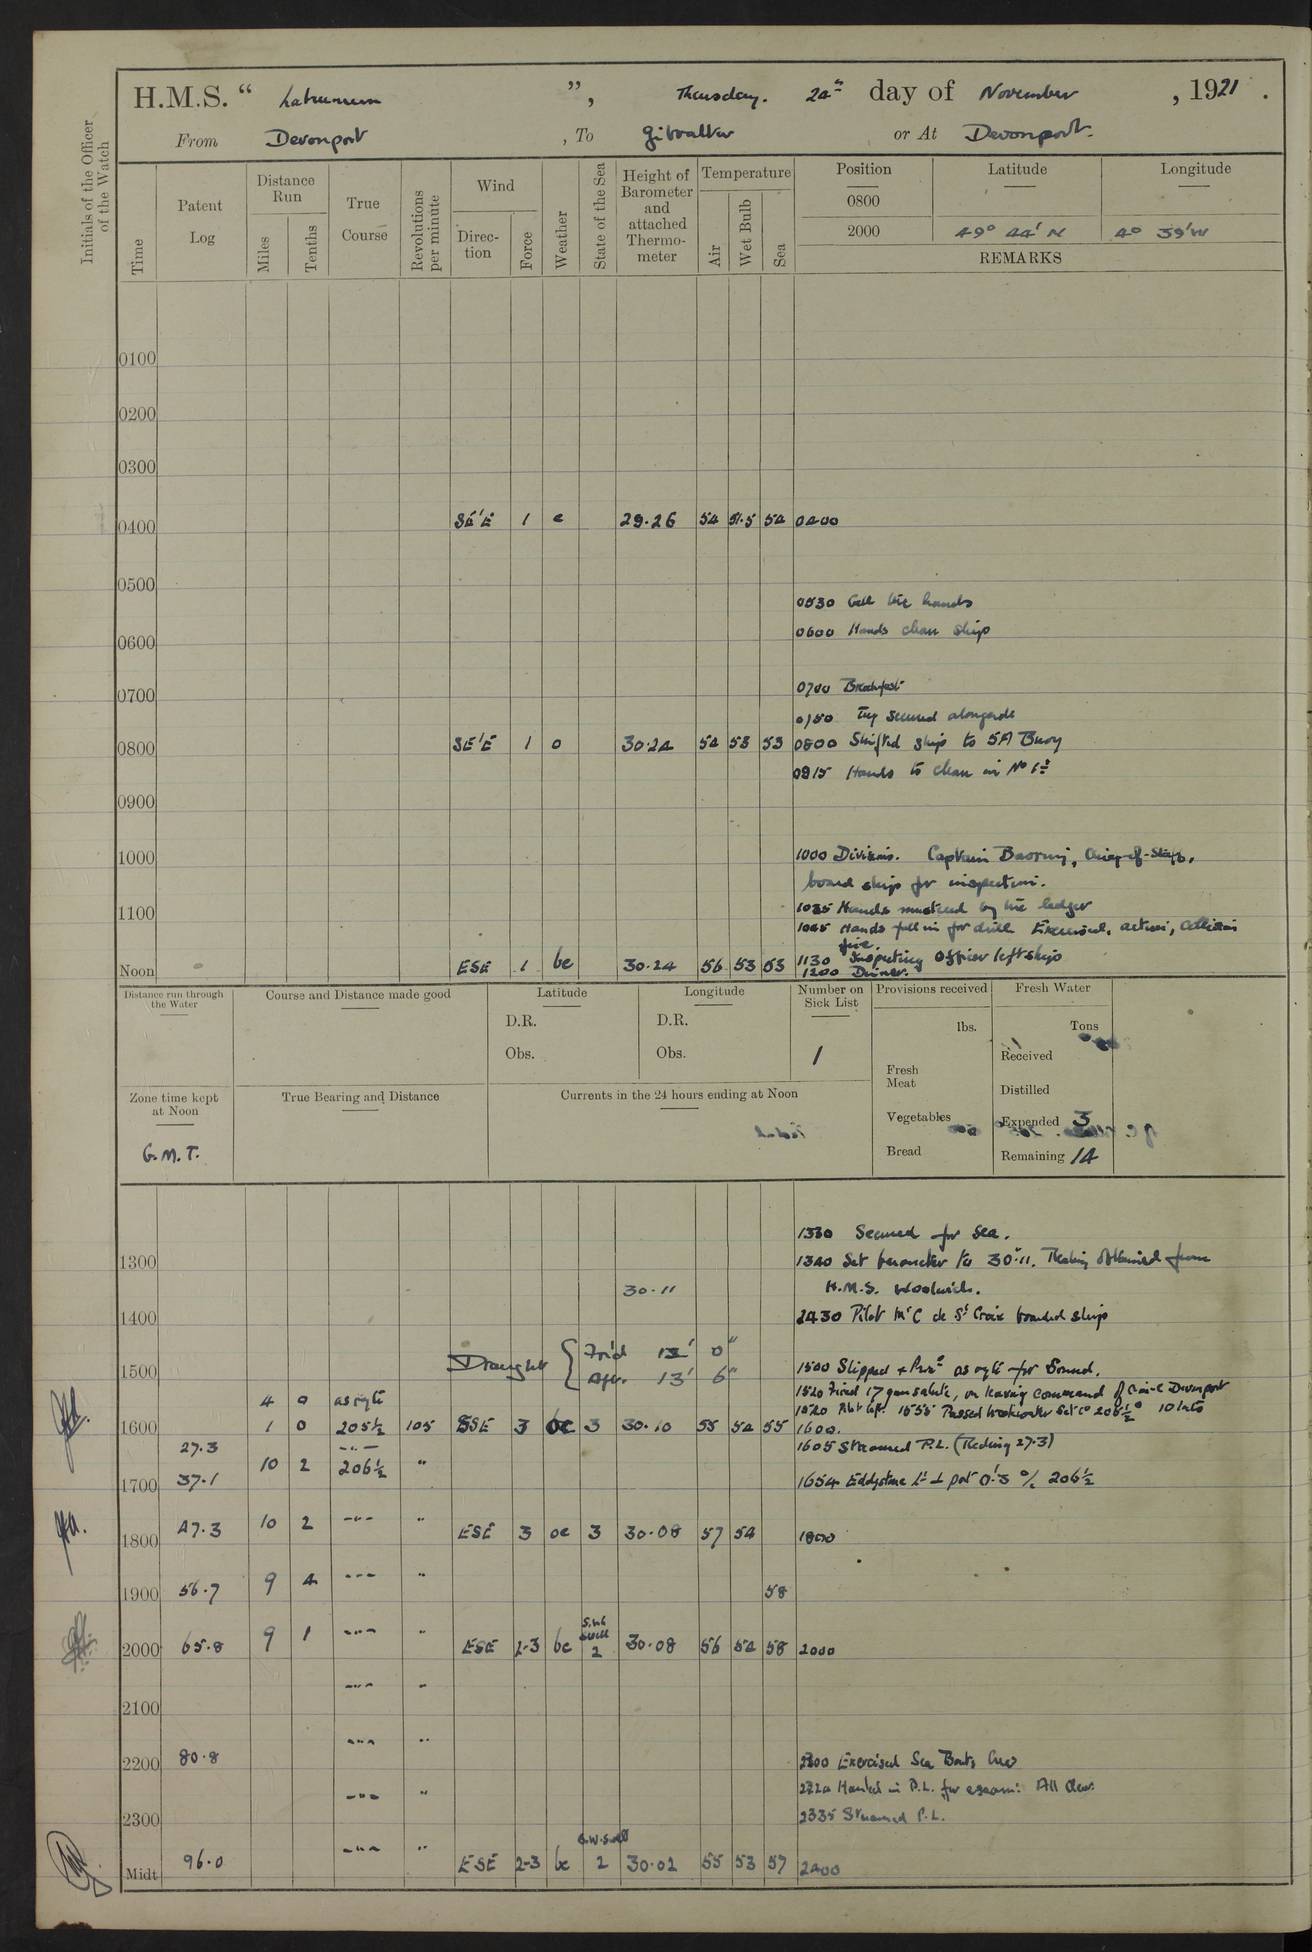 H.M.S. “ Laburnum ”, Thursday. 24th day of November, 1921.
From Devonport, To Gibraltar or At Devonport.
Initials of the Officer of the Watch
Time
Patent Log
Distance Run
Miles
Tenths
True Course
Revolutions per minute
Wind
Direction
Force
Weather
State of the Sea
Height of Barometer and attached Thermometer
Temperature
Air
Wet Bulb
Sea
Position Latitude Longitude
0800
2000 49° 44' N 4° 39' W
REMARKS
0100
0200
0300
0400 SE'E 1 c 29.26 54 51.5 54 0400
0500
0530 Call the hands
0600 Hands clean ship
0600
0700 Breakfast
0700
0750 Tug secured alongside
0800 SE'E 1 o 30.24 54 53 53 0800 Shifted ship to 5A Buoy
0815 Hands to clean in No 1s
0900
1000 1000 Divisions. Captain, Chief-of-Staff,
board ship for inspection.
1035 Hands mustered by the ledger
1100
1045 Hands fell in for drill Exercised, action, collision
fire.
1130 Inspecting Officer left ship
Noon ESE 1 bc 30.24 56 53 53 1200 Dinner.
Distance run through the Water
Course and Distance made good
Latitude
D.R.
Obs.
Longitude
D.R.
Obs.
Number on Sick List
1
Provisions received
lbs.
Fresh Meat
Vegetables
Bread
Fresh Water
Tons
Received
Distilled
Expended 3
Remaining 14
Zone time kept at Noon
G.M.T.
True Bearing and Distance
Currents in the 24 hours ending at Noon
1330 Secured for Sea.
1300
1340 Set barometer to 30".11. Reading obtained from
30.11 H.M.S. Woolwich.
1400 2430 Pilot Mr C de St Croix boarded ship
Draught { For'd 12' 0"
Aft. 13' 6"
1500 1500 Slipped & Pro'd as reqte for Sound.
4 0 as reqte 1520 Fired 17 gun salute, on leaving command of C-in-C Devonport
1520 Pilot left. 1555 Passed breakwater Set Co 205½° 10 knots
1600 1 0 205½ 105 SSE 3 bc 3 30.10 55 54 55 1600.
27.3 1605 Streamed P.L. (Reading 27.3)
1700 37.1 10 2 206½ " 1654 Eddystone Lt ⊥ port 0'.3 a/c 206½
1800 47.3 10 2 --"-- " ESE 3 oc 3 30.08 57 54 1800
1900 56.7 9 4 --"-- " 58
S.W. swell
2000 65.8 9 1 --"-- " ESE 2-3 bc 2 30.08 56 54 58 2000
2100 --"-- "
2200 80.8 --"-- " 2200 Exercised Sea Boats Crew
2220 Hauled in P.L. for exam: All clear.
2300 --"-- " 2335 Streamed P.L.
S.W. swell
Midt 96.0 --"-- " ESE 2-3 bc 2 30.02 55 53 57 2400